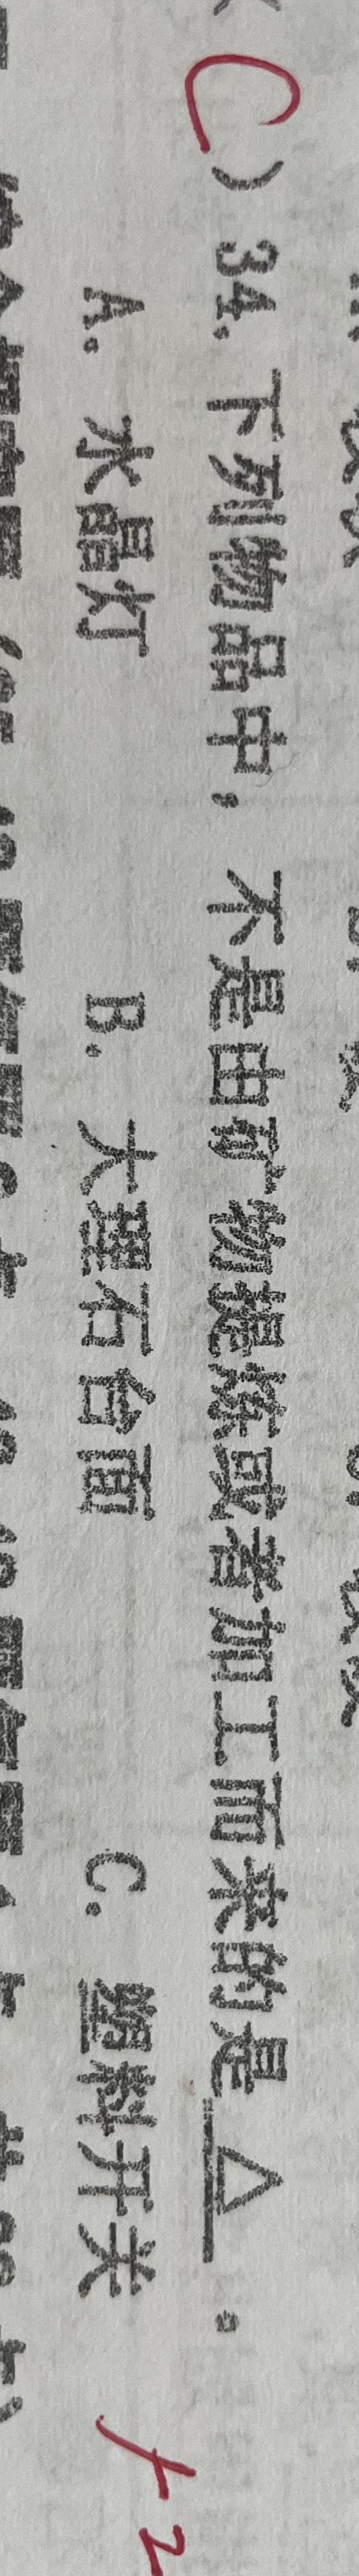 C）34. 下列物品中，不是由矿物提炼或者加工而来的是 △ 。
A. 水晶灯 B. 大理石台面 C. 塑料开关 +2